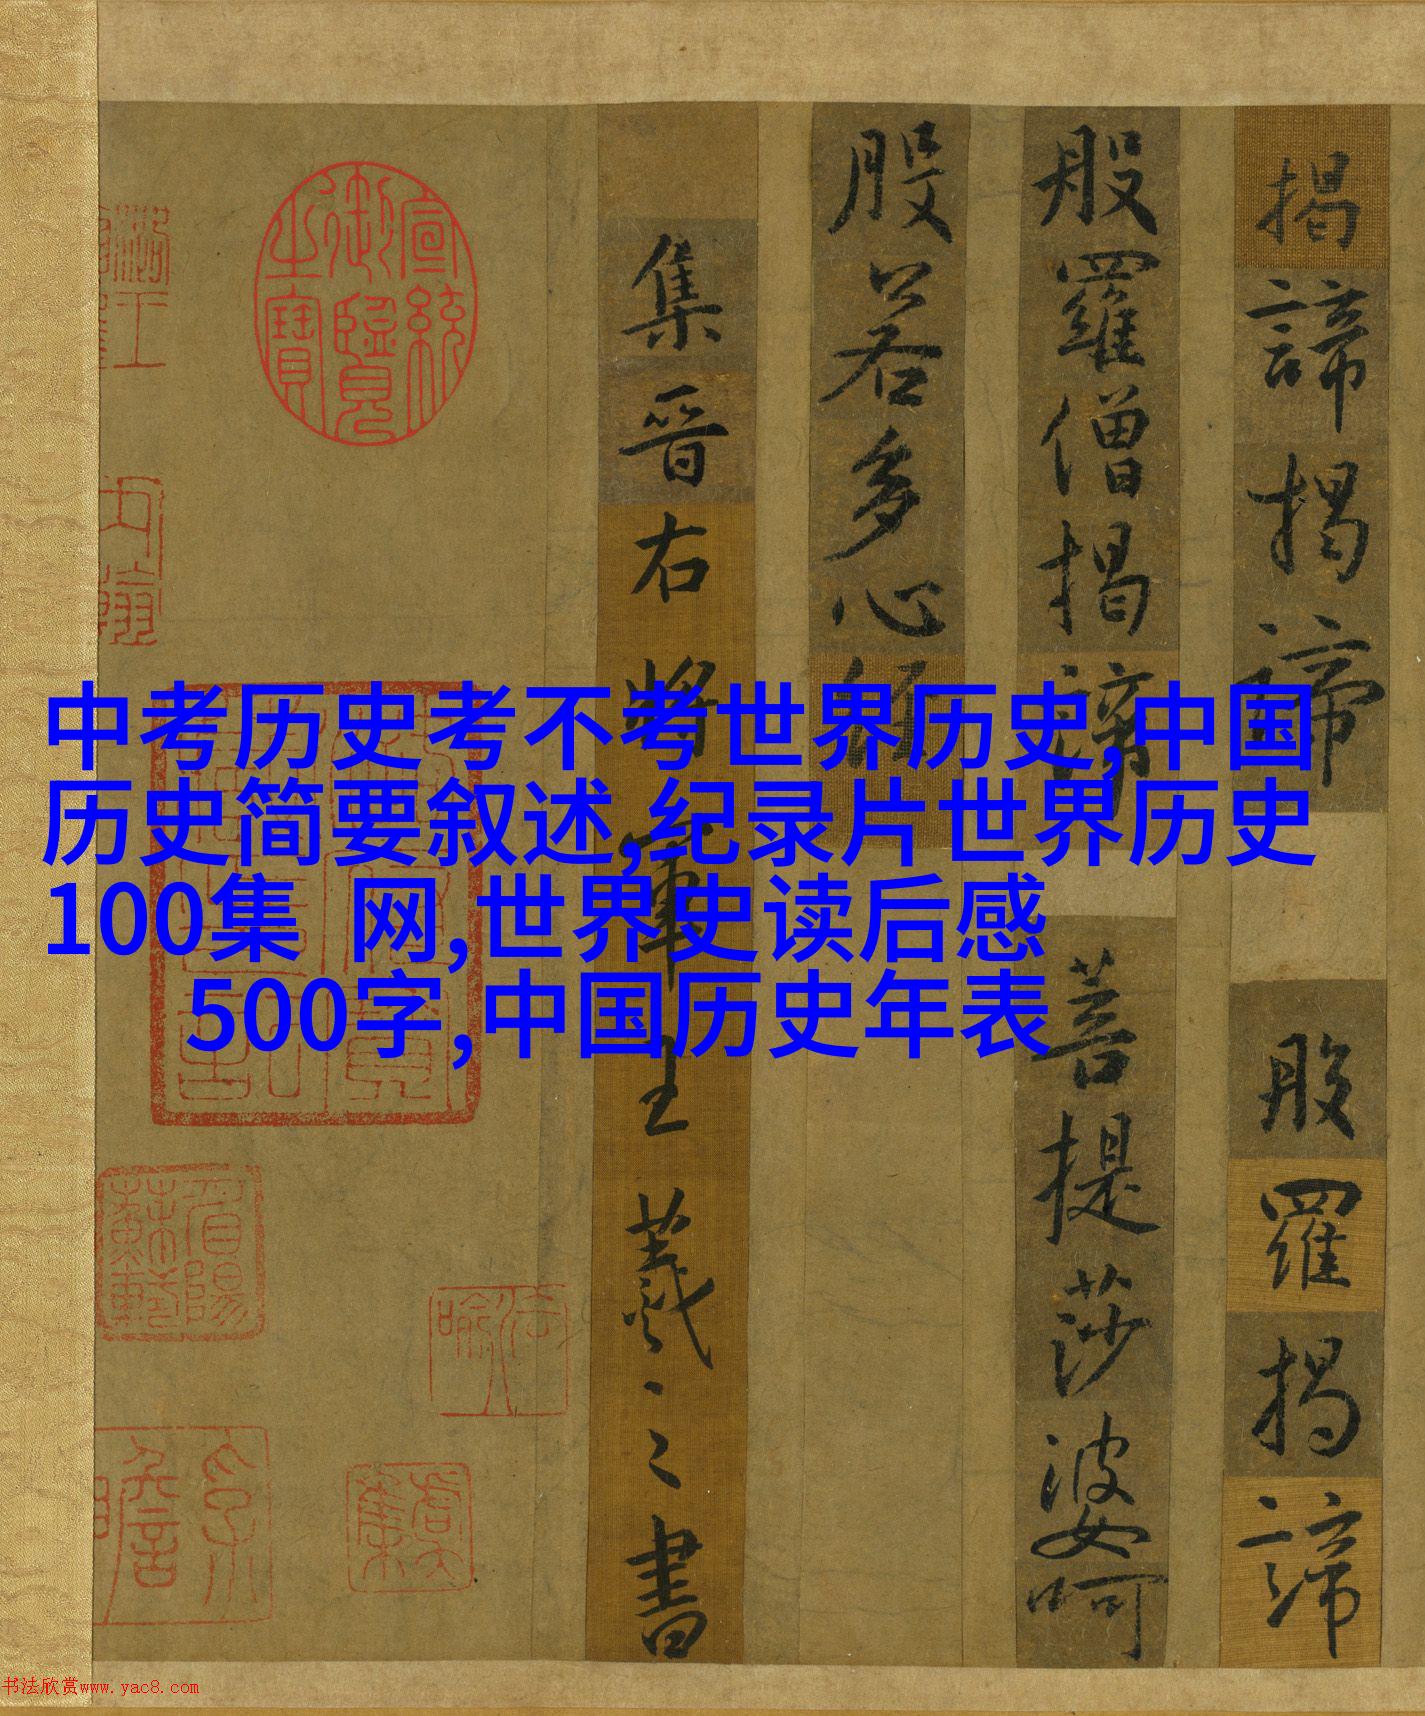 中考历史考不考世界历史,中国
历史简要叙述,纪录片世界历史
100集 网,世界史读后感
500字,中国历史年表
揭諦揭諦 般羅揭諦
般羅僧揭諦 菩提莎婆呵
般若多心
集晉右將軍王羲之書
宣統御覽之寶
书法欣赏www.yac8.com